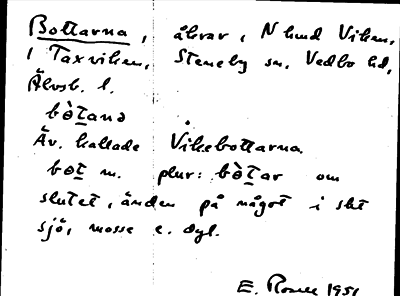 Bottarna, åkrar, N hund Viken,
i Taxviken, Steneby sn, Vedbo hd,
Älvsb. l.
bòtanə
Äv. kallade Vikebottarna.
bot m. plur: bòtar om
slutet, änden på något i sht
sjö, mosse e. dyl.
E. 1951